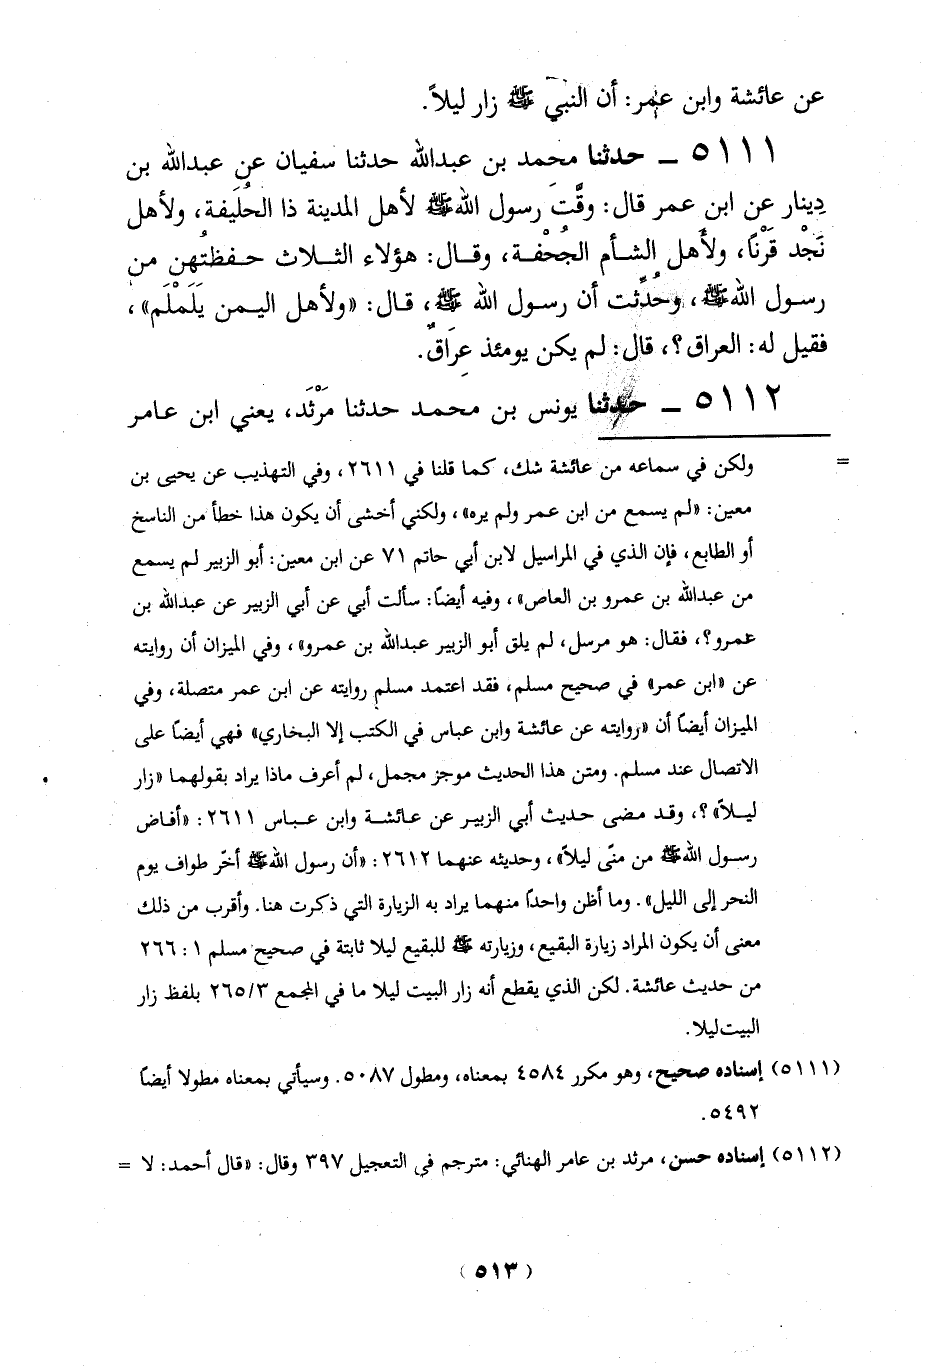 عن عائشة وابن عمر: أن النبي ﷺ زار ليلاً.
٥١١١ ــ حدثنا محمد بن عبدالله حدثنا سفيان عن عبدالله بن
دِينار عن ابن عمر قال: وقَّتَ رسول الله ﷺ لأهل المدينة ذا الحُلَيفة، ولأهل
نَجْد قَرْنًا، ولأهل الشأم الجُحْفة، وقال: هؤلاء الثلاث حفظتُهن من
رسول الله ﷺ، وحُدِّثت أن رسول الله ﷺ، قال: «ولأهل اليمن يَلَمْلَم»،
فقيل له: العراق؟، قال: لم يكن يومئذ عِرَاقٌ.
٥١١٢ ــ حدثنا يونس بن محمد حدثنا مَرْثَد، يعني ابن عامر
= ولكن في سماعه من عائشة شك، كما قلنا في ٢٦١١، وفي التهذيب عن يحيى بن
معين: «لم يسمع من ابن عمر ولم يره»، ولكني أخشى أن يكون هذا خطأ من الناسخ
أو الطابع، فإن الذي في المراسيل لابن أبي حاتم ٧١ عن ابن معين: أبو الزبير لم يسمع
من عبدالله بن عمرو بن العاص»، وفيه أيضاً: سألت أبي عن أبي الزبير عن عبدالله بن
عمرو؟، فقال: هو مرسل، لم يلق أبو الزبير عبدالله بن عمرو»، وفي الميزان أن روايته
عن «ابن عمر» في صحيح مسلم، فقد اعتمد مسلم روايته عن ابن عمر متصلة، وفي
الميزان أيضاً أن «روايته عن عائشة وابن عباس في الكتب إلا البخاري» فهي أيضاً على
الاتصال عند مسلم. ومتن هذا الحديث موجز مجمل، لم أعرف ماذا يراد بقولهما «زار
ليلاً»؟، وقد مضى حديث أبي الزبير عن عائشة وابن عباس ٢٦١١: «أفاض
رسول الله ﷺ من منًى ليلاً»، وحديثه عنهما ٢٦١٢: «أن رسول الله ﷺ أخّر طواف يوم
النحر إلى الليل». وما أظن واحداً منهما يراد به الزيارة التي ذكرت هنا. وأقرب من ذلك
معنى أن يكون المراد زيارة البقيع، وزيارته ﷺ للبقيع ليلا ثابتة في صحيح مسلم ١: ٢٦٦
من حديث عائشة. لكن الذي يقطع أنه زار البيت ليلا ما في المجمع ٢٦٥/٣ بلفظ زار
البيت ليلا.
(٥١١١) إسناده صحيح، وهو مكرر ٤٥٨٤ بمعناه، ومطول ٥٠٨٧. وسيأتي بمعناه مطولا أيضاً
٥٤٩٢.
(٥١١٢) إسناده حسن، مرثد بن عامر الهنائي: مترجم في التعجيل ٣٩٧ وقال: «قال أحمد: لا =
(٥١٣)